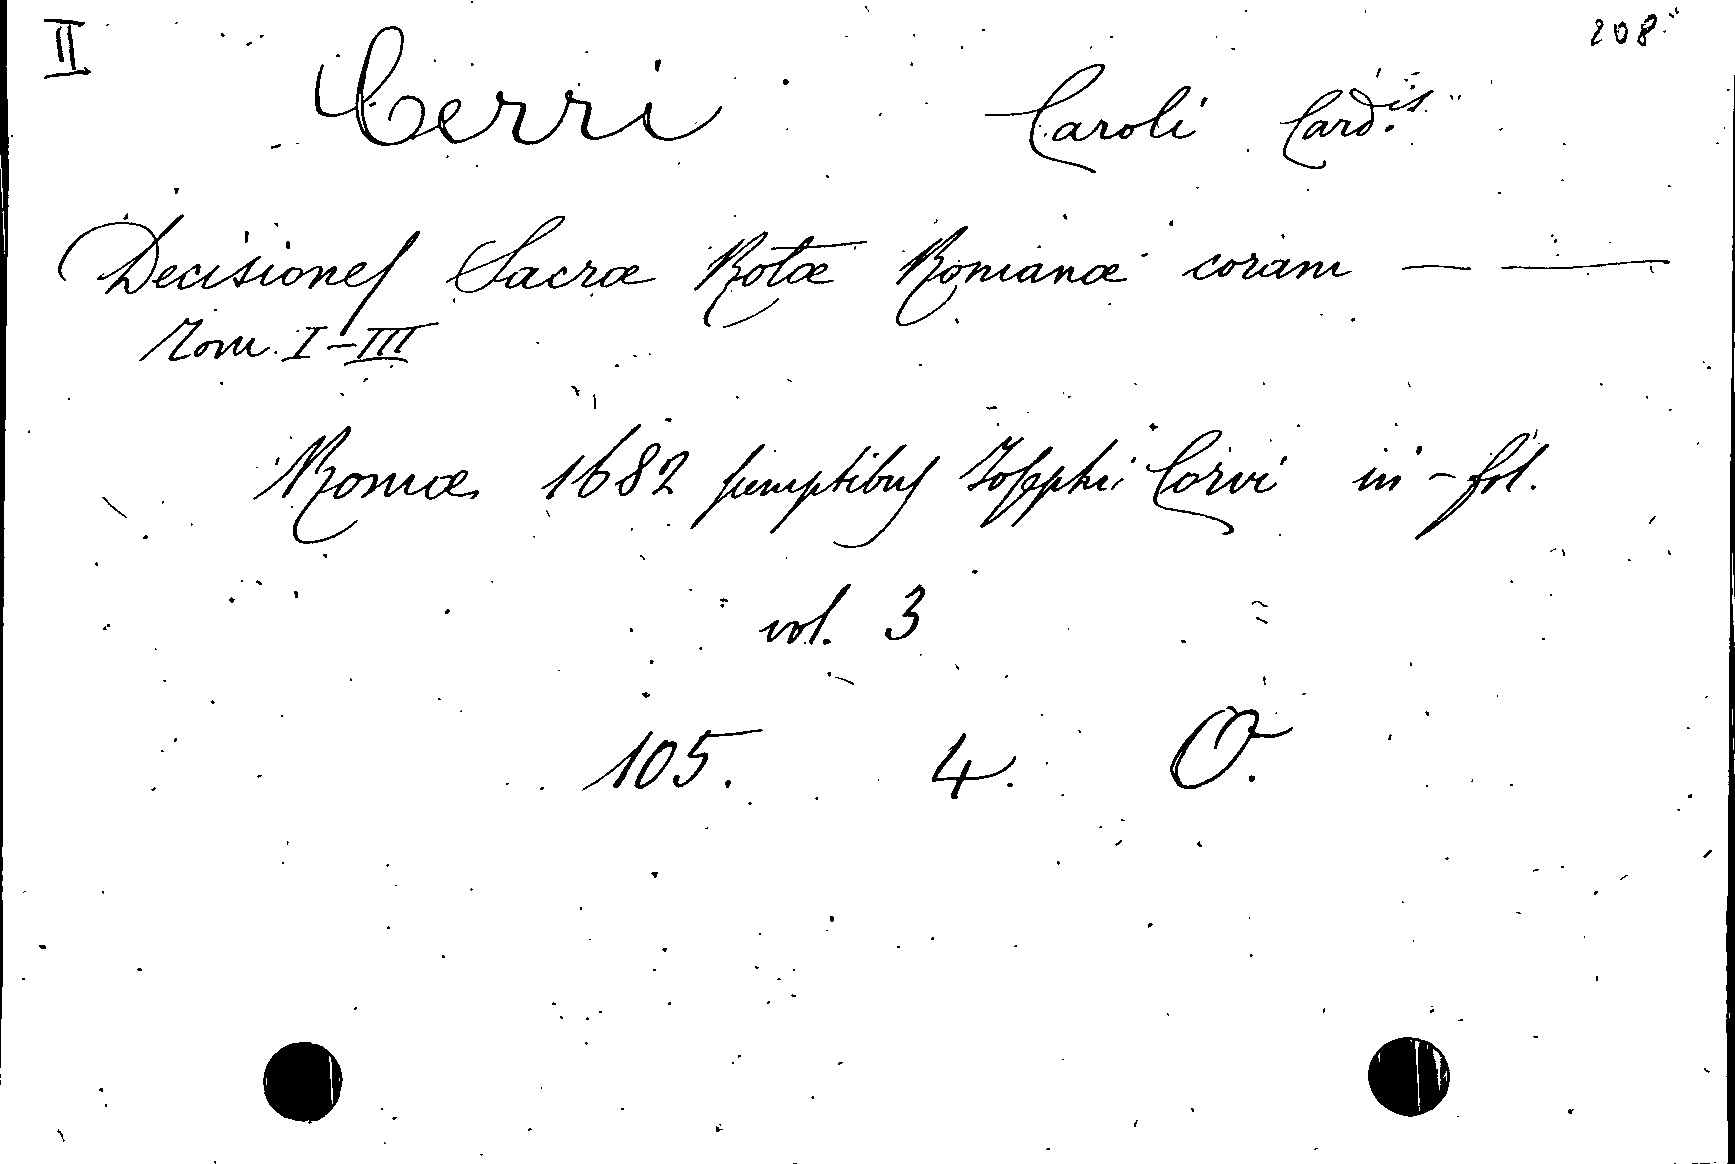 II 208
Cerri Caroli Card.is
Decisiones Sacræ Rotæ Romanæ coram — —
Tom. I-III
Romæ 1682 sumptibus Josephi Corvi in-fol.
vol. 3
105. 4. O.